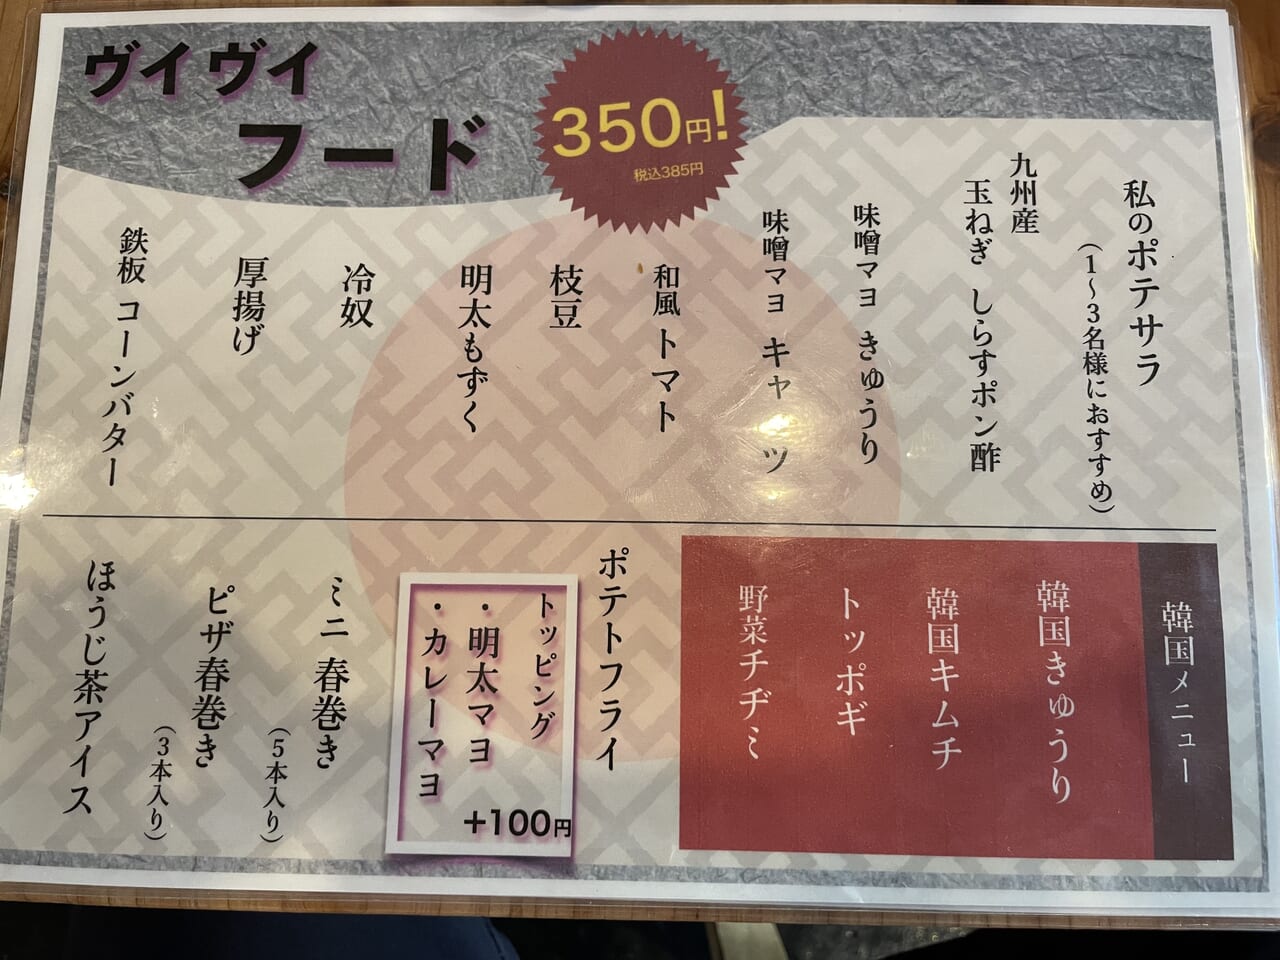 ヴィヴィ
フード
350円!
税込385円
私のポテサラ
(1～3名様におすすめ)
九州産
玉ねぎ しらすポン酢
味噌マヨ きゅうり
味噌マヨ キャベツ
和風 トマト
枝豆
明太もずく
冷奴
厚揚げ
鉄板 コーンバター
韓国メニュー
韓国きゅうり
韓国キムチ
トッポギ
野菜チヂミ
ポテトフライ
トッピング
・明太マヨ
・カレーマヨ
+100円
ミニ 春巻き
(5本入り)
ピザ春巻き
(3本入り)
ほうじ茶アイス